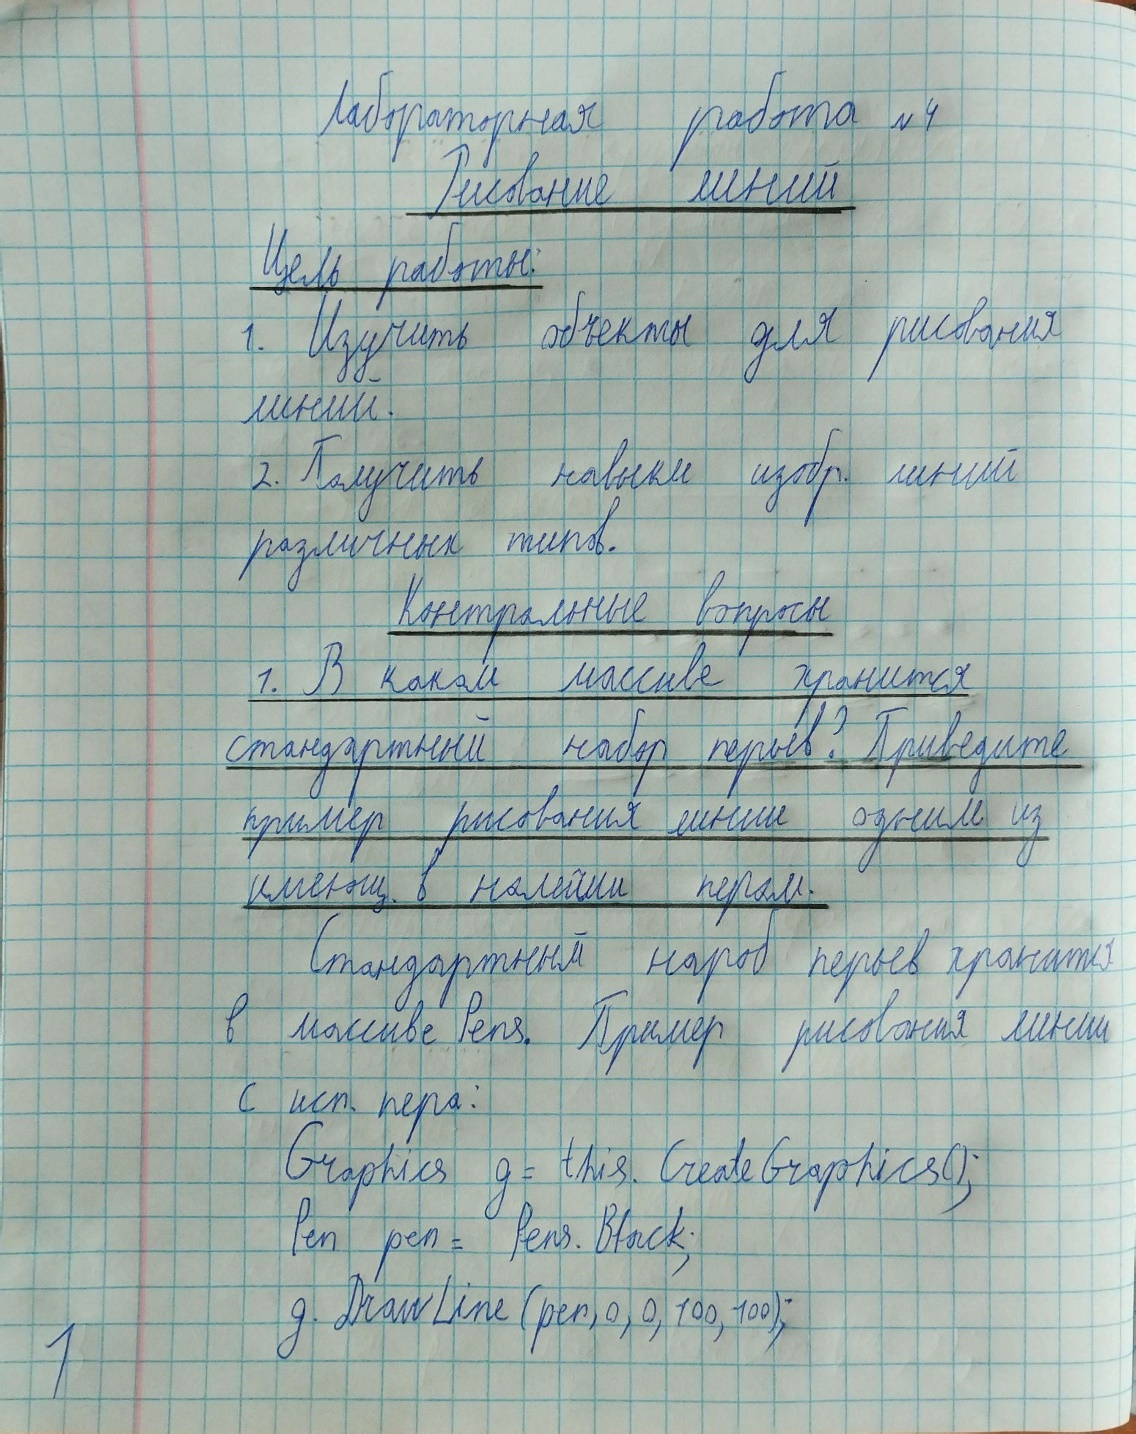 Лабораторная работа №4
Рисование линий
Цель работы:
1. Изучить объекты для рисования
линий.
2. Получить навыки изобр. линий
различных типов.
Контрольные вопросы
1. В каком массиве хранится
стандартный набор перьев? Приведите
пример рисования линии одним из
имеющ. в палейши пером.
Стандартный нароб перьев хранится
в массиве Pens. Пример рисования линии
с исп. пера:
Graphics g = this. CreateGraphics();
Pen pen = Pens. Black;
g. DrawLine (pen, 0, 0, 100, 100);
1